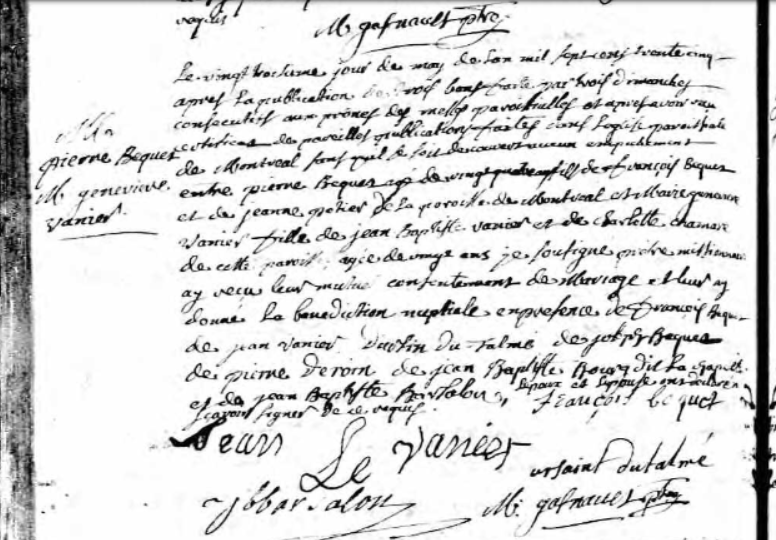 requis
M. gasnault ptre.
Le vingt troisieme jour de may de lan mil sept cens trente cinq
apres la publication de trois bans faite par trois dimanches
consecutifs aux prônes des messes paroissialles et apres avoir eu
de pareilles publications faites dans Leglise paroissiale
de Montreal sans quil se soit decouvert aucun empechement
entre pierre Bequet agé de vingt quatre ans fils de françois Bequet
et de jeanne potier de la paroisse de Montreal et Marie genevieve
vanier fille de jean Baptiste vanier et de charlotte
de cette paroisse agée de ans je soussigné prêtre missionnaire
ay reçu leur mutuel consentement de Mariage et leur ay
donné la benediction nuptiale en presence de françois Bequet
de jean vanier du talmé de joseph Bequet
de pierre de jean Baptiste Bourg dit la chapelle
et de jean Baptiste Barsalou, Lepoux et Lepouse ont declaré ne
sçavoir signer de ce requis.
pierre Bequet
M. genevieve
vanier.
françois bequet
Jean Le vanier
ursaint dutalmé
jbbarsalou
M. gasnault ptre